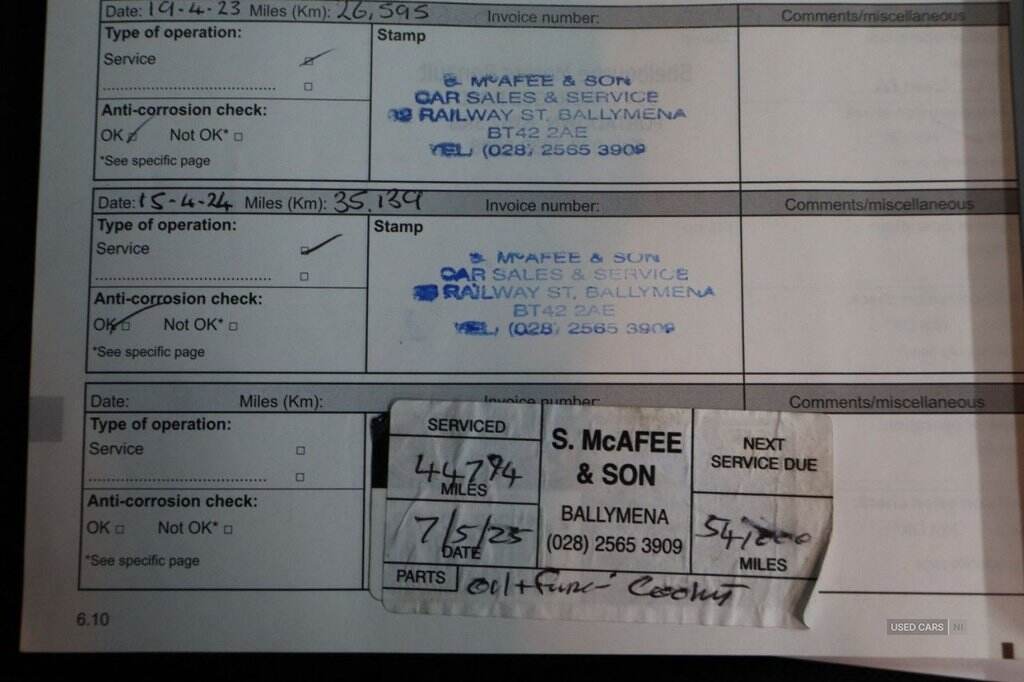 Date: 19-4-23 Miles (Km): 26,595 Invoice number: Comments/miscellaneous
Type of operation: Stamp
Service
S. McAFEE & SON
CAR SALES & SERVICE
RAILWAY ST, BALLYMENA
BT42 2AE
TEL, (028) 2565 3909
Anti-corrosion check:
OK Not OK*
*See specific page
Date: 15-4-24 Miles (Km): 35,139 Invoice number: Comments/miscellaneous
Type of operation: Stamp
Service
S. McAFEE & SON
CAR SALES & SERVICE
RAILWAY ST, BALLYMENA
BT42 2AE
TEL, (028) 2565 3909
Anti-corrosion check:
OK Not OK*
*See specific page
Date: Miles (Km): Invoice number: Comments/miscellaneous
Type of operation:
Service
Anti-corrosion check:
OK Not OK*
*See specific page
SERVICED
44794
MILES
7/5/25
DATE
S. McAFEE
& SON
BALLYMENA
(028) 2565 3909
NEXT
SERVICE DUE
MILES
PARTS Oil +
6.10
USED CARS NI